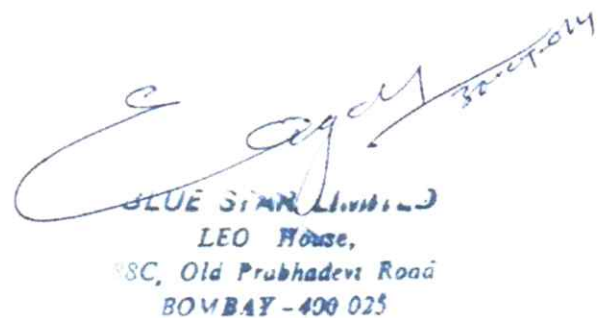 BLUE STAR LIMITED
LEO House,
88C, Old Prabhadevi Road
BOMBAY - 400 025